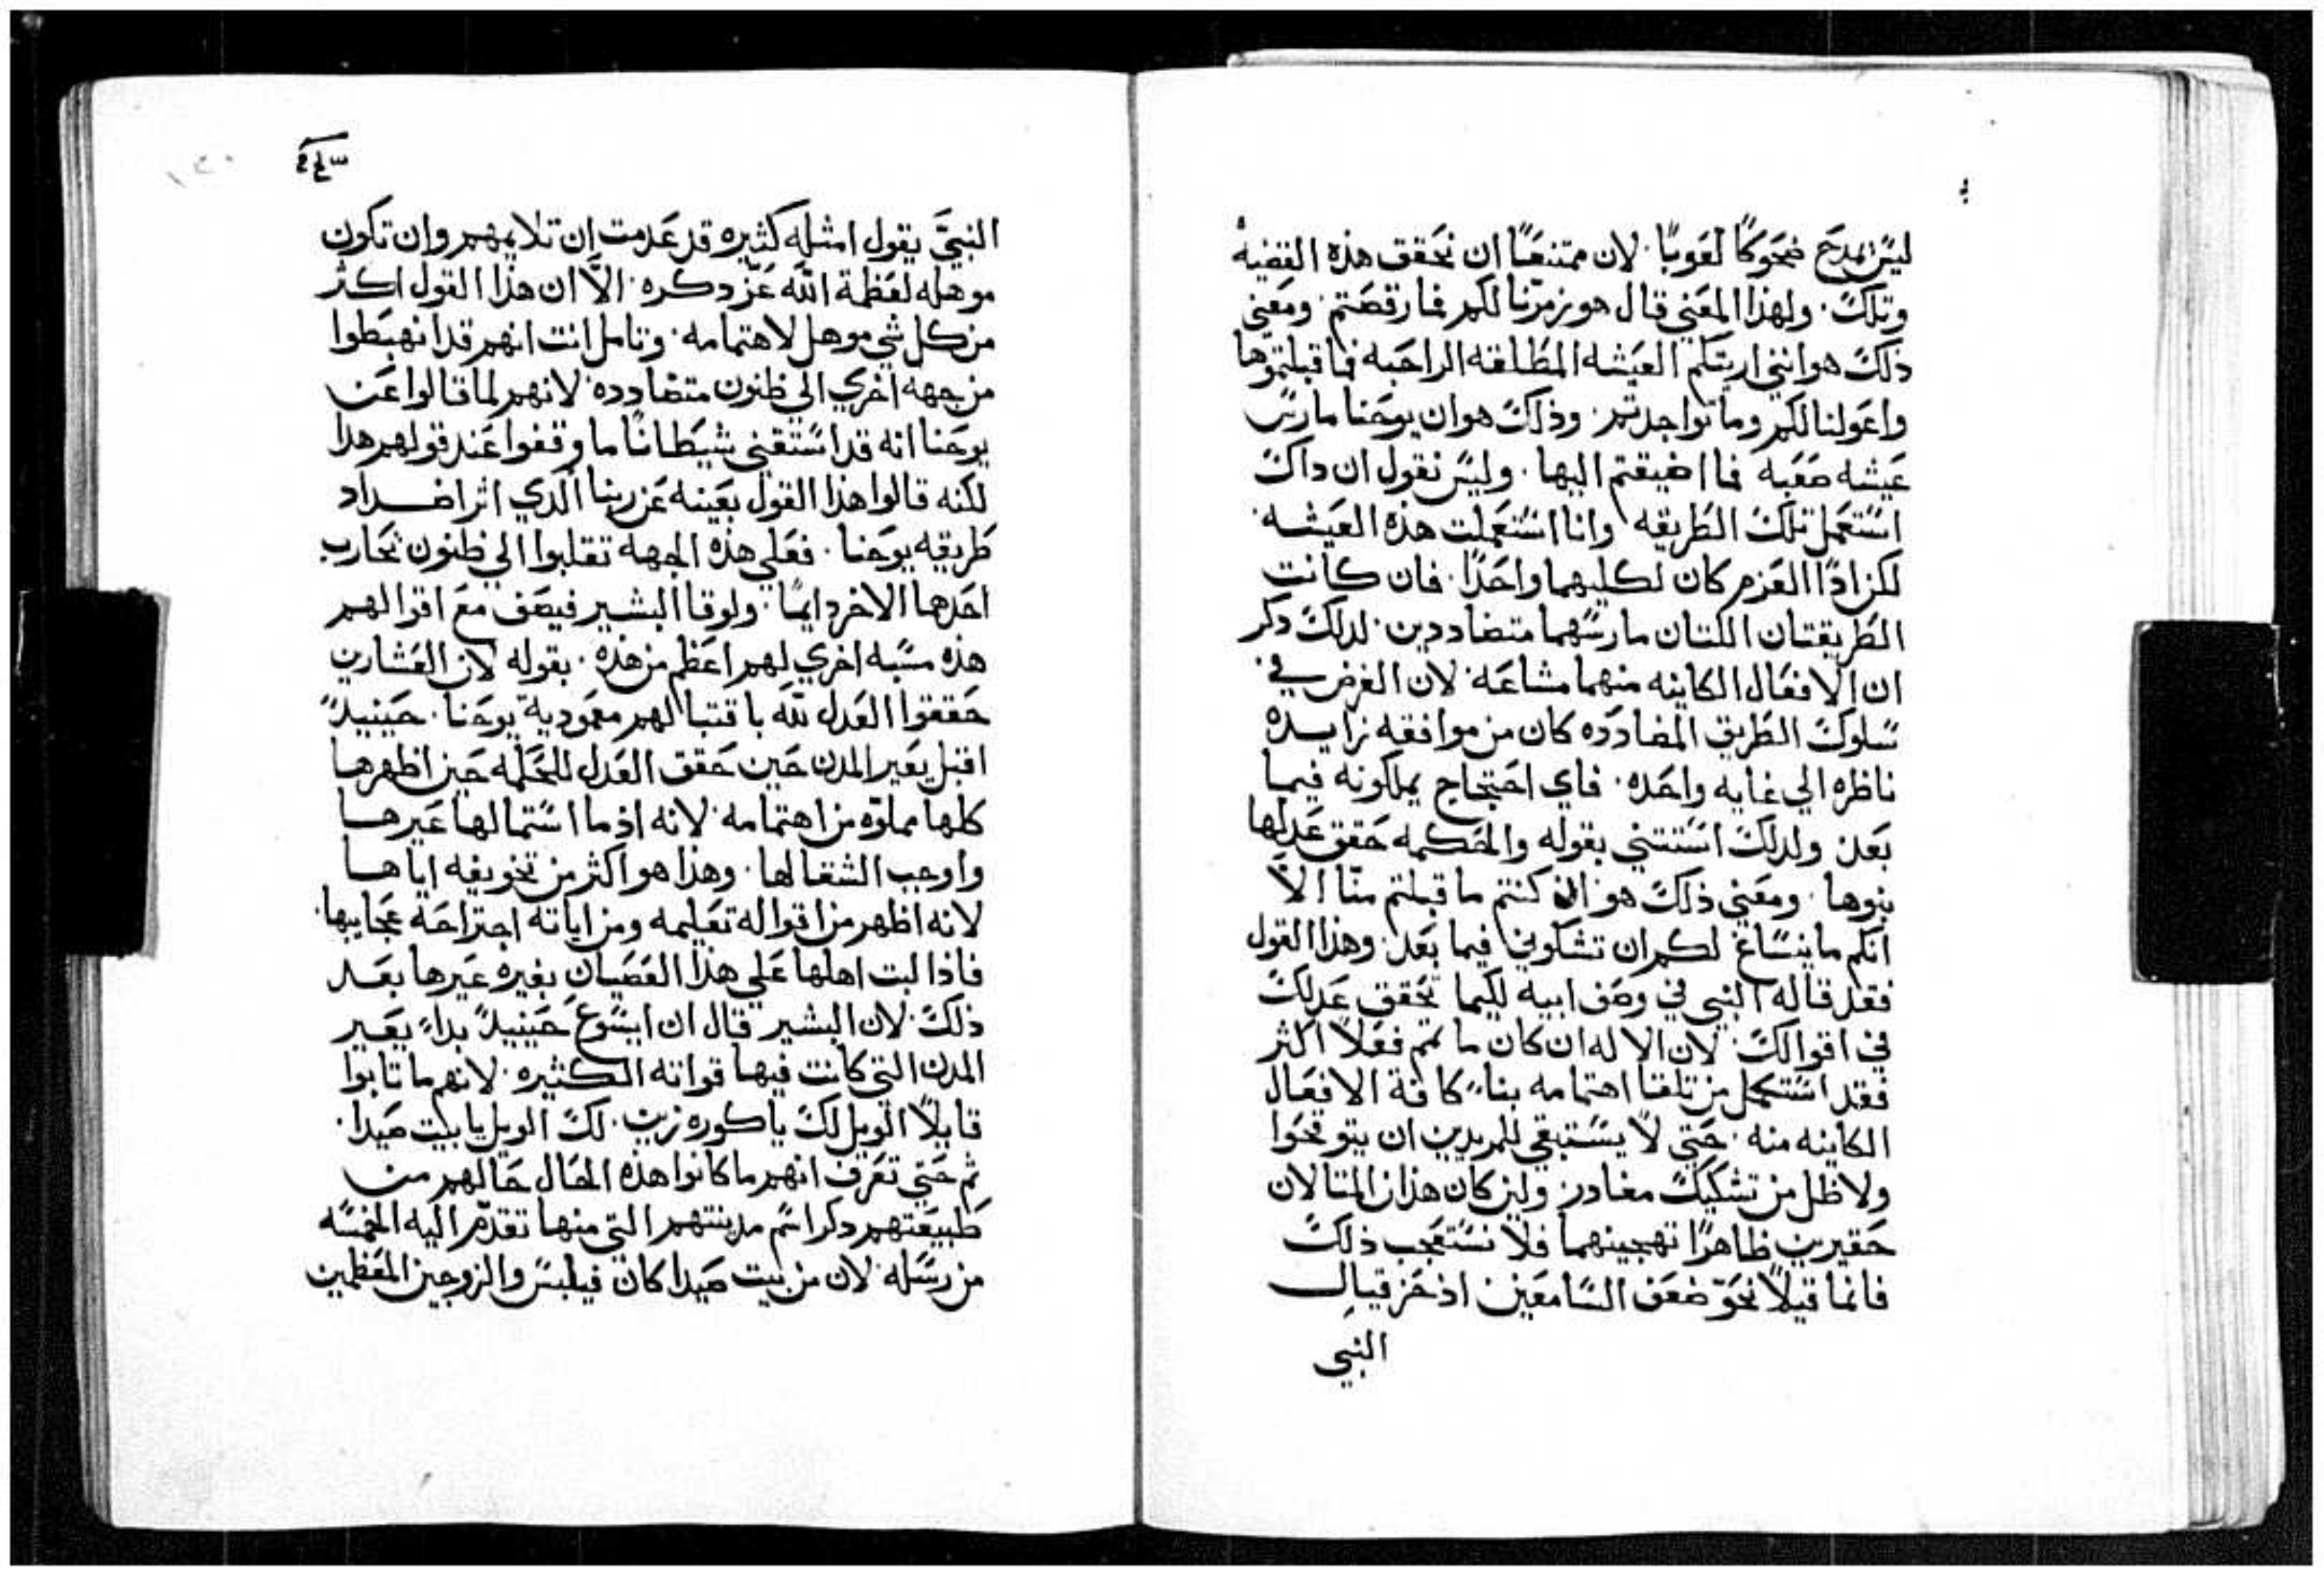 ليس نمدح ضحوكًا لعوبًا. لان ممتنعًا ان نحقق هذه القضيه
وتلك. ولهذا المعني قال هو زمرّنا لكم فما رقصتم. ومعني
ذلك هو انني اريتكم العيشه المطلقه الراحبه فما قبلتموّها
واعولنا لكم وما تواجدتم. وذلك هو ان يوحنا مارس
عيشه صعبه فما اضيفتم اليها. وليس نقول ان داك
استعمل تلك الطريقه وانا استعملت هذه العيشه.
لكن ادًا العزم كان لكليهما واحدًا. فان كانت
الطريقتان اللتان مارسهما متضاددين. لدلك دكر
ان الافعال الكاينه منهما مشاعه. لان الغرض في
سلوك الطريق المضادده كان من موافقه زايده
ناظره الي غايه واحده. فاي احتجاج يملكونه فيما
بعد. ولدلك استتني بقوله والحكمه حقق عدلها
بنوها. ومعني ذلك هو ان كنتم ما قبلتم منّا الّا
انكم ما ينساغ لكم ان تشكوني فيما بعد. وهذا القول
فقد قاله النبي في وصف ابيه لكيما تحقق عدلك
في اقوالك. لان الاله ان كان ما تمم فعلًا اكثر
فقد استكمل من تلقا اهتمامه بنا كافة الافعال
الكاينه منه. حتي لا يستبقي للمريدين ان يتوقحوا
ولا ظل من تشكيك مغادر. ولين كان هذان المتالان
حقيرين ظاهرًا تهجينهما فلا نستعجب ذلك
فانما قيلا نحوّ ضعف السامعين اذ حزقيال
النبي
النبيّ يقول امثله كثيره قد عدمت ان تلايمهم وان تكون
موهله لعظمة اللّه عزّ دكره. الّا ان هذا القول اكثر
من كل شي موهل لاهتمامه. وتامل انت انهم قد انهبطوا
من جهه اخري الي ظنون متضادده. لانهم لما قالوا عن
يوحنا انه قد استقني شيطانًا ما وقفوا عند قولهم هدا
لكنه قالوا هذا القول بعينه عن ربنا الدي اثر اضداد
طريقه يوحنا. فعلي هذه الجهه تقلبوا الي ظنون تحارب
احدها الاخر دايمًا. ولوقا البشير فيصف مع اقوالهم
هذه مسبه اخري لهم اعظم من هذه. بقوله لان العشارين
حققوا العدل للّه باقتبالهم معمودية يوحنا. حينيدً
اقبل يعير المدن حين حقق العدل للحكمه حين اظهرها
كلها مملوّه من اهتمامه. لانه اذ ما استمالها عيرها
واوجب الشقا لها. وهذا هو اكثر من تخويفه اياها
لانه اظهر من اقواله تعليمه ومن اياته اجتراحة عجايبها.
فاذا لبت اهلها علي هذا العصيان بغيره عيرها بعد
ذلك. لان البشير قال ان ايسوع حينيدً بداء يعير
المدن التي كانت فيها قواته الكثيره. لانهم ما تابوا
قايلًا الويل لك يا كوره زين. لك الويل يا بيت صيدا.
ثم حتي تعرف انهم ما كانوا هذه الحال حالهم من
طبيعتهم دكر اسم مدينتهم التي منها تقدّم اليه الخمسه
من رسله. لان من بيت صيدا كان فيلبس والزوجين المعظمين